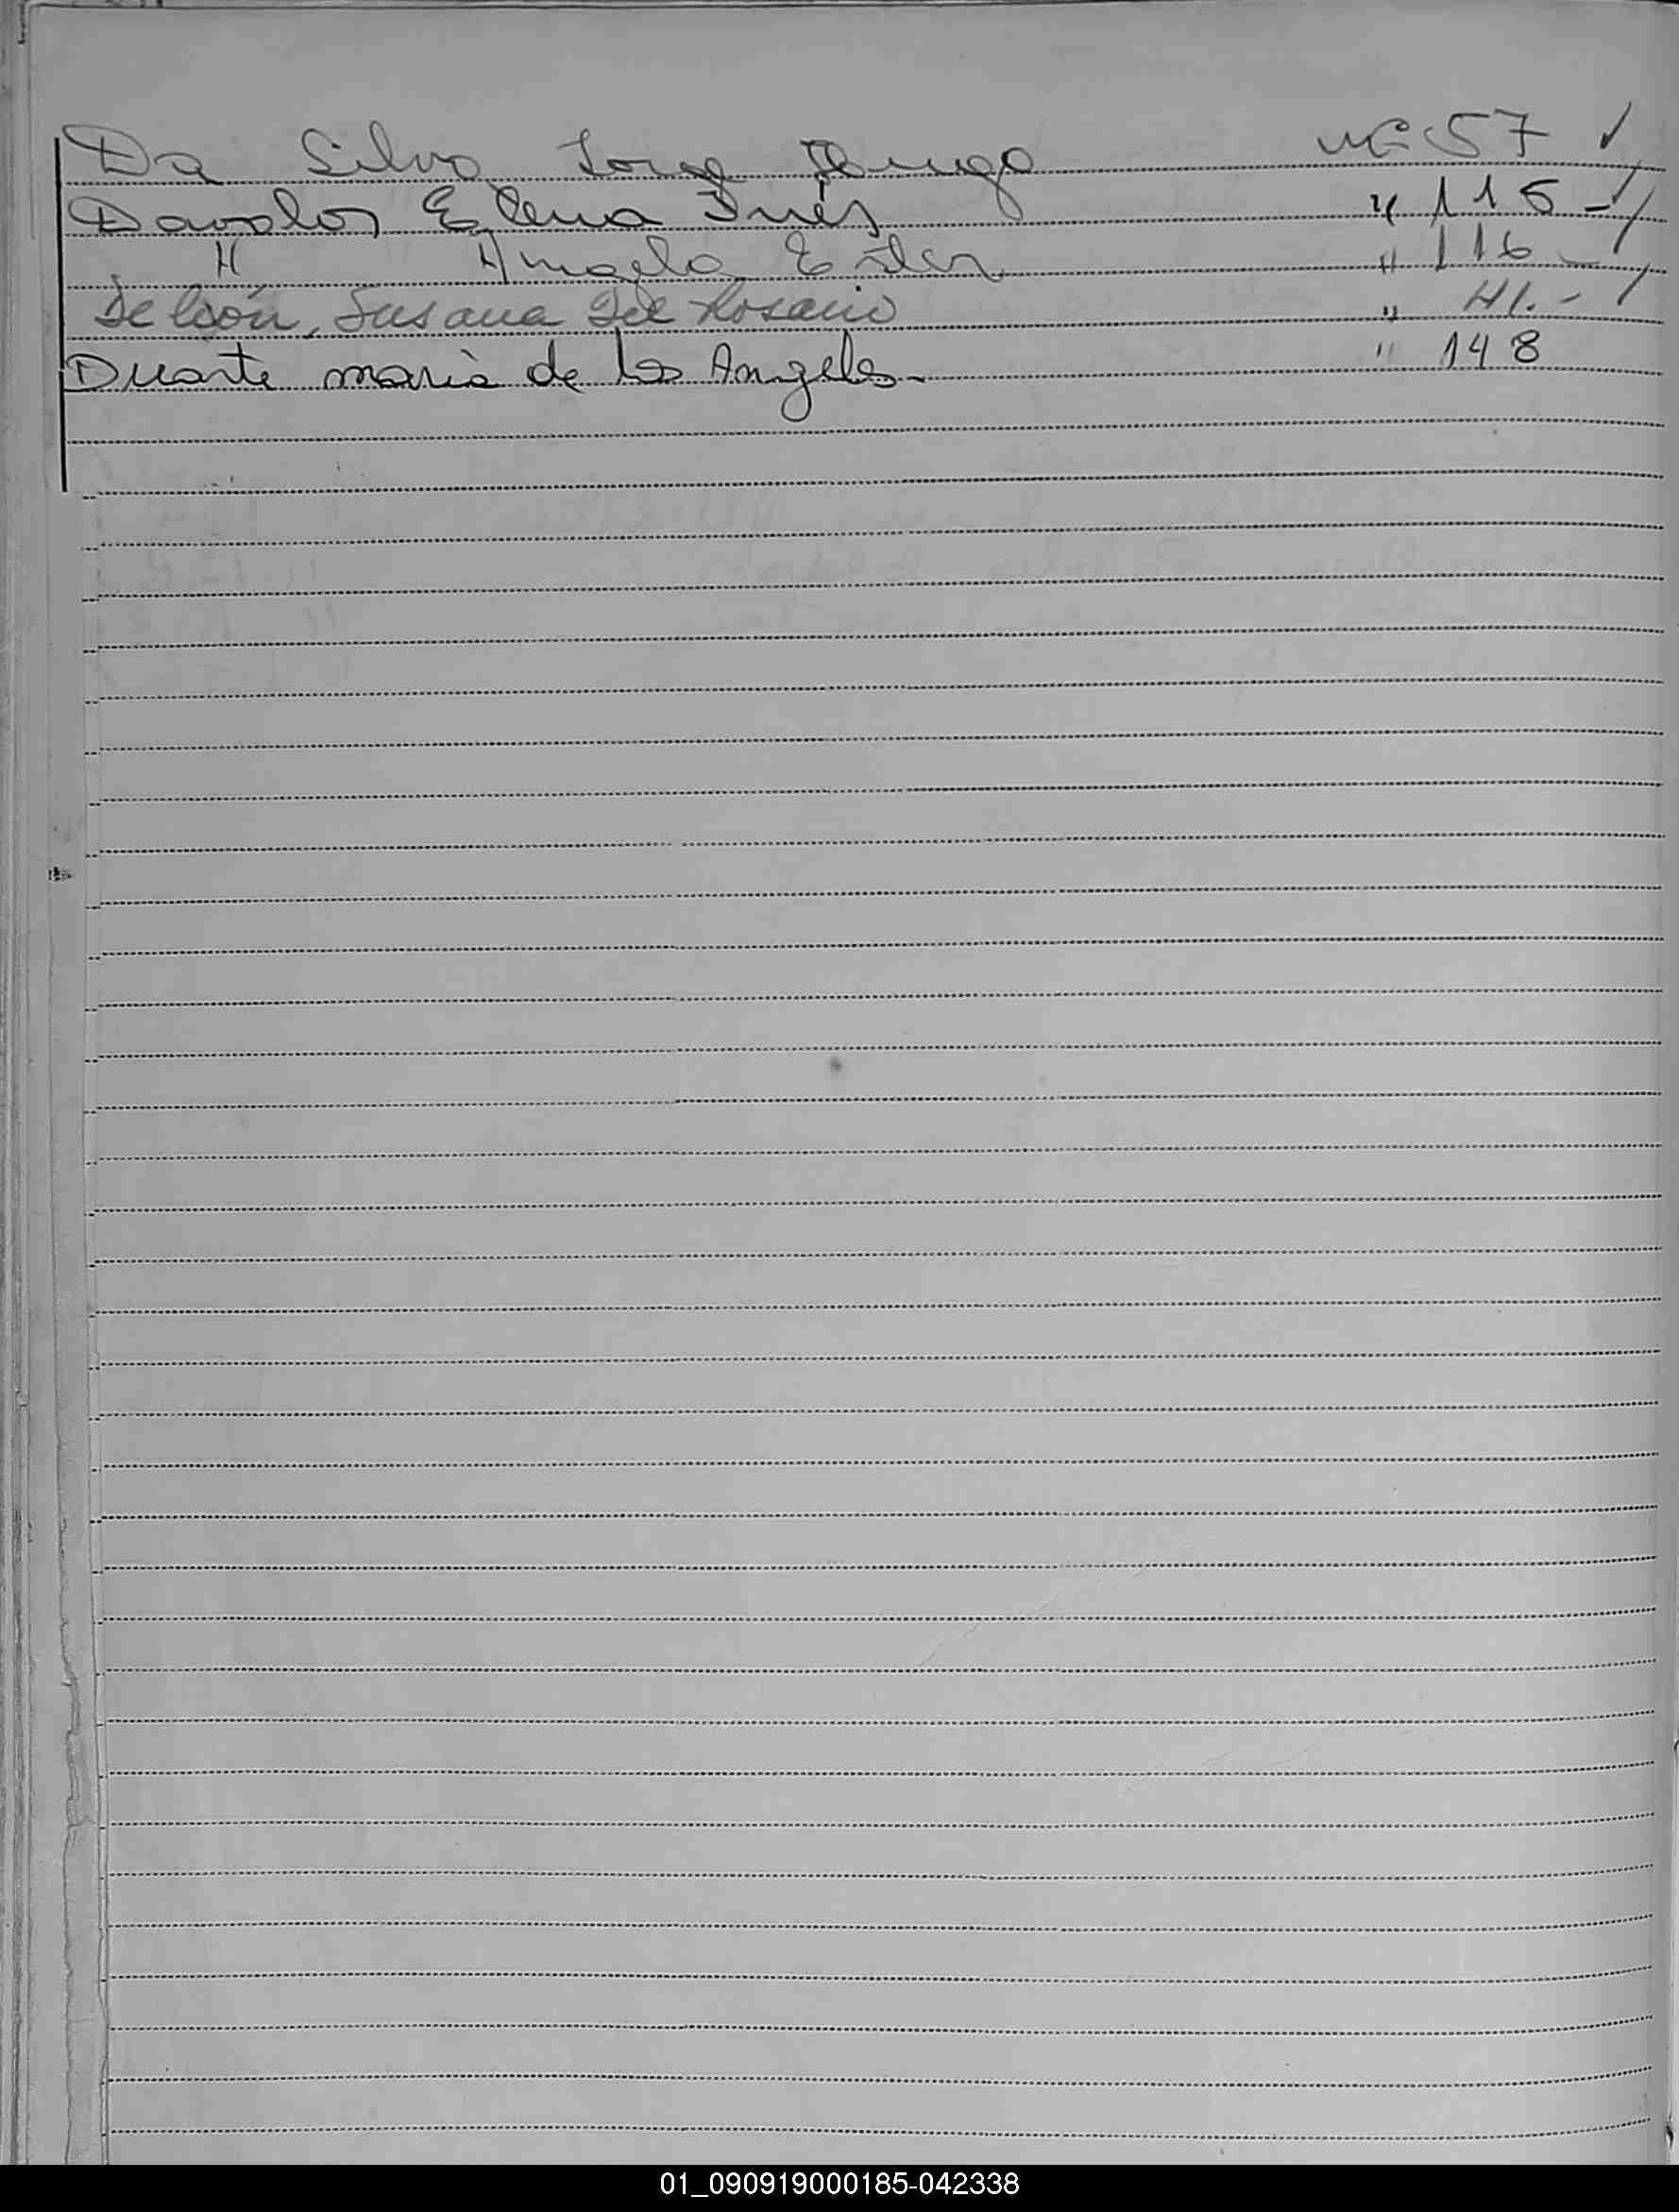 Da Silva Jorge Hugo nº 57 ✓
Davalos Elena Inés " 115 -
" Angela Ester " 116 -
De León, Susana Del Rosario " 41.-
Duarte maria de los Angeles. " 148
01_090919000185-042338